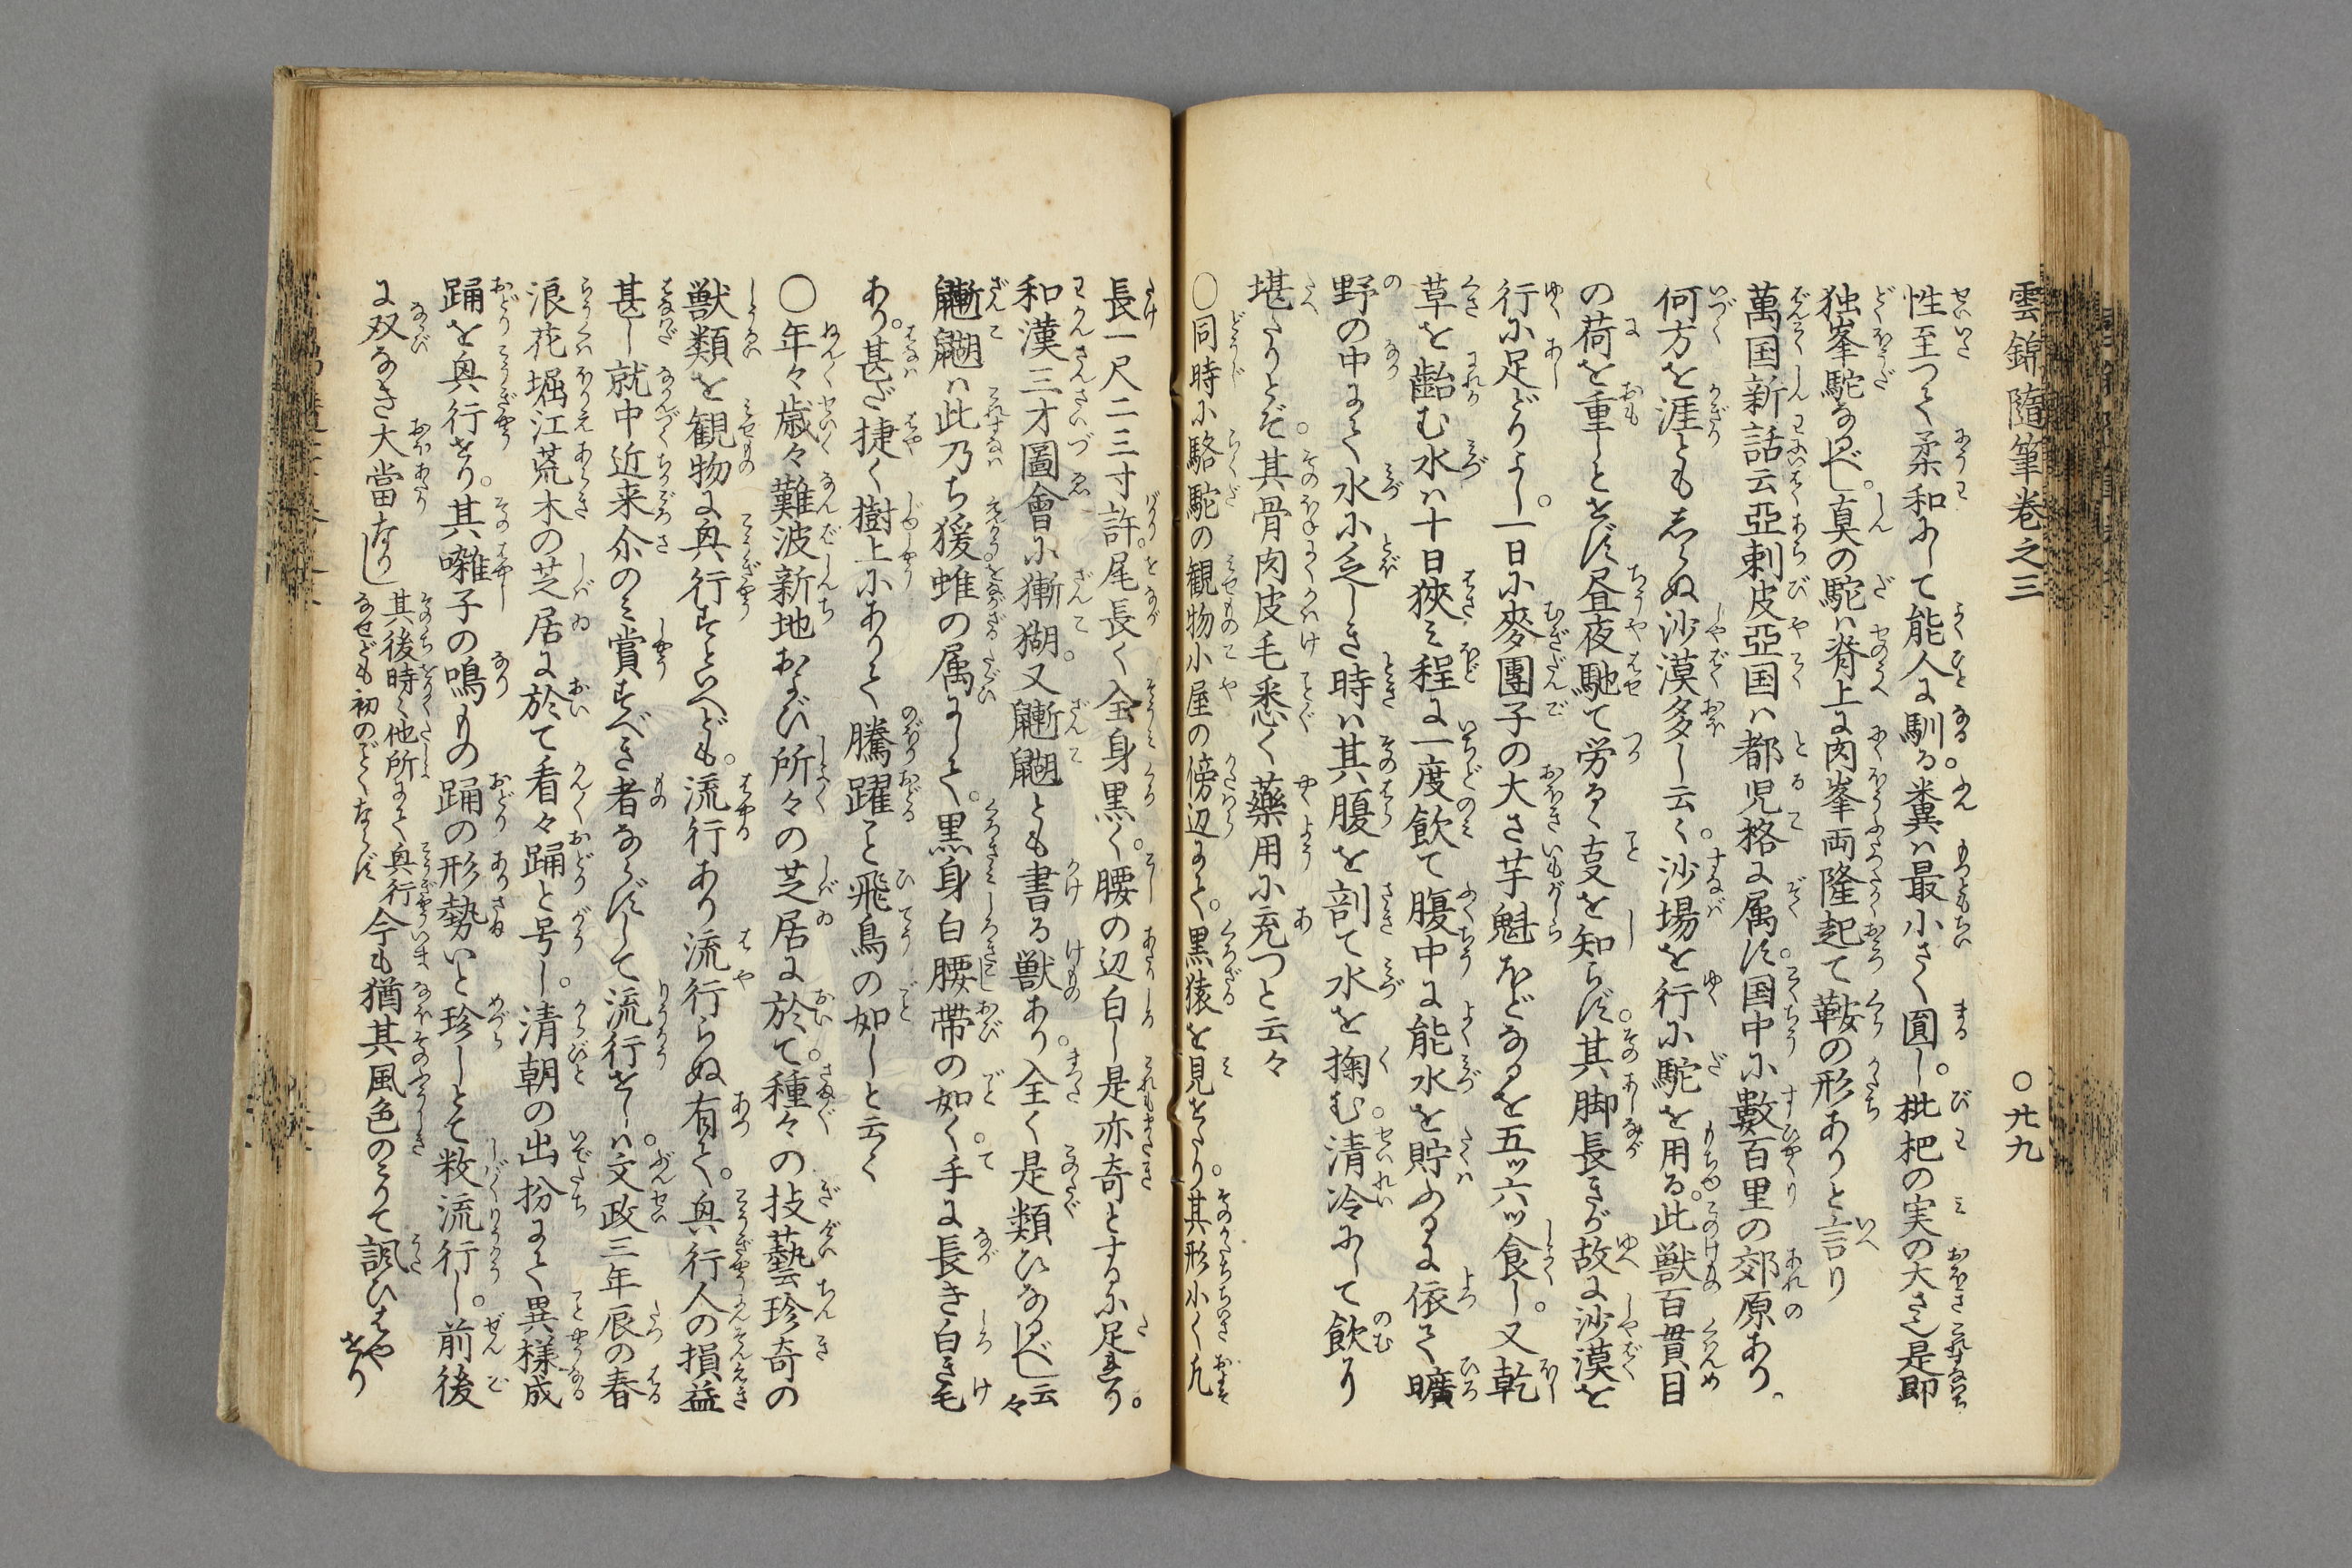 雲錦随筆巻之三　○廿九
性至つて柔和にして能人に馴る。糞は最小さく圓し。枇杷の実の大さ也是即
独峯駝なるべし。真の駝は脊上に肉峯両隆起て鞍の形ありと言り
萬国新話云亞剌皮亞国は都児格に属す。国中に數百里の郊原あり。
何方を涯ともしらぬ沙漠多し云々。沙場を行に駝を用る。此獣百貫目
の荷を重しとせず昼夜馳て労るゝ事を知らず。其脚長きが故に沙漠を
行に足どりよし。一日に麥團子の大さ芋魁ほどなるを五ッ六ッ食し。又乾
草を齝む水は十日狭み程に一度飲て腹中に能水を貯ふるに依て曠
野の中にて水に乏しき時は其腹を剖て水を掬む。清冷にして飲り
堪たりとぞ。其骨肉皮毛悉く藥用に充つと云々
○同時に駱駝の観物小屋の傍辺にて。黒猿を見せたり。其形小く凡
長一尺二三寸許。尾長く全身黒く。腰の辺白し是亦奇とするに足れり。
和漢三才圖會に獑猢。又䶫䶅とも書る獣あり。全く是類ひなるべし云々
䶫䶅は此乃ち猨蜼の属にして。黒身白腰帯の如く。手に長き白き毛
あり。甚だ捷く樹上にありて騰躍こと飛鳥の如しと云々
○年々歳々難波新地および所々の芝居に於て。種々の技藝珍奇の
獣類を観物に興行すといへども。流行あり流行らぬ有て。興行人の損益
甚し就中近来尒のみ賞すべき者ならずして流行せしは。文政三年辰の春
浪花堀江荒木の芝居に於て看々踊と号し。清朝の出扮にて異様成
踊を興行せり。其囃子の鳴もの踊の形勢いと珍しとて数流行し。前後
に双なき大當なりし
其後時々他所にて興行
なせども初のごとくならず
今も猶其風色のみりて諷ひはやせり